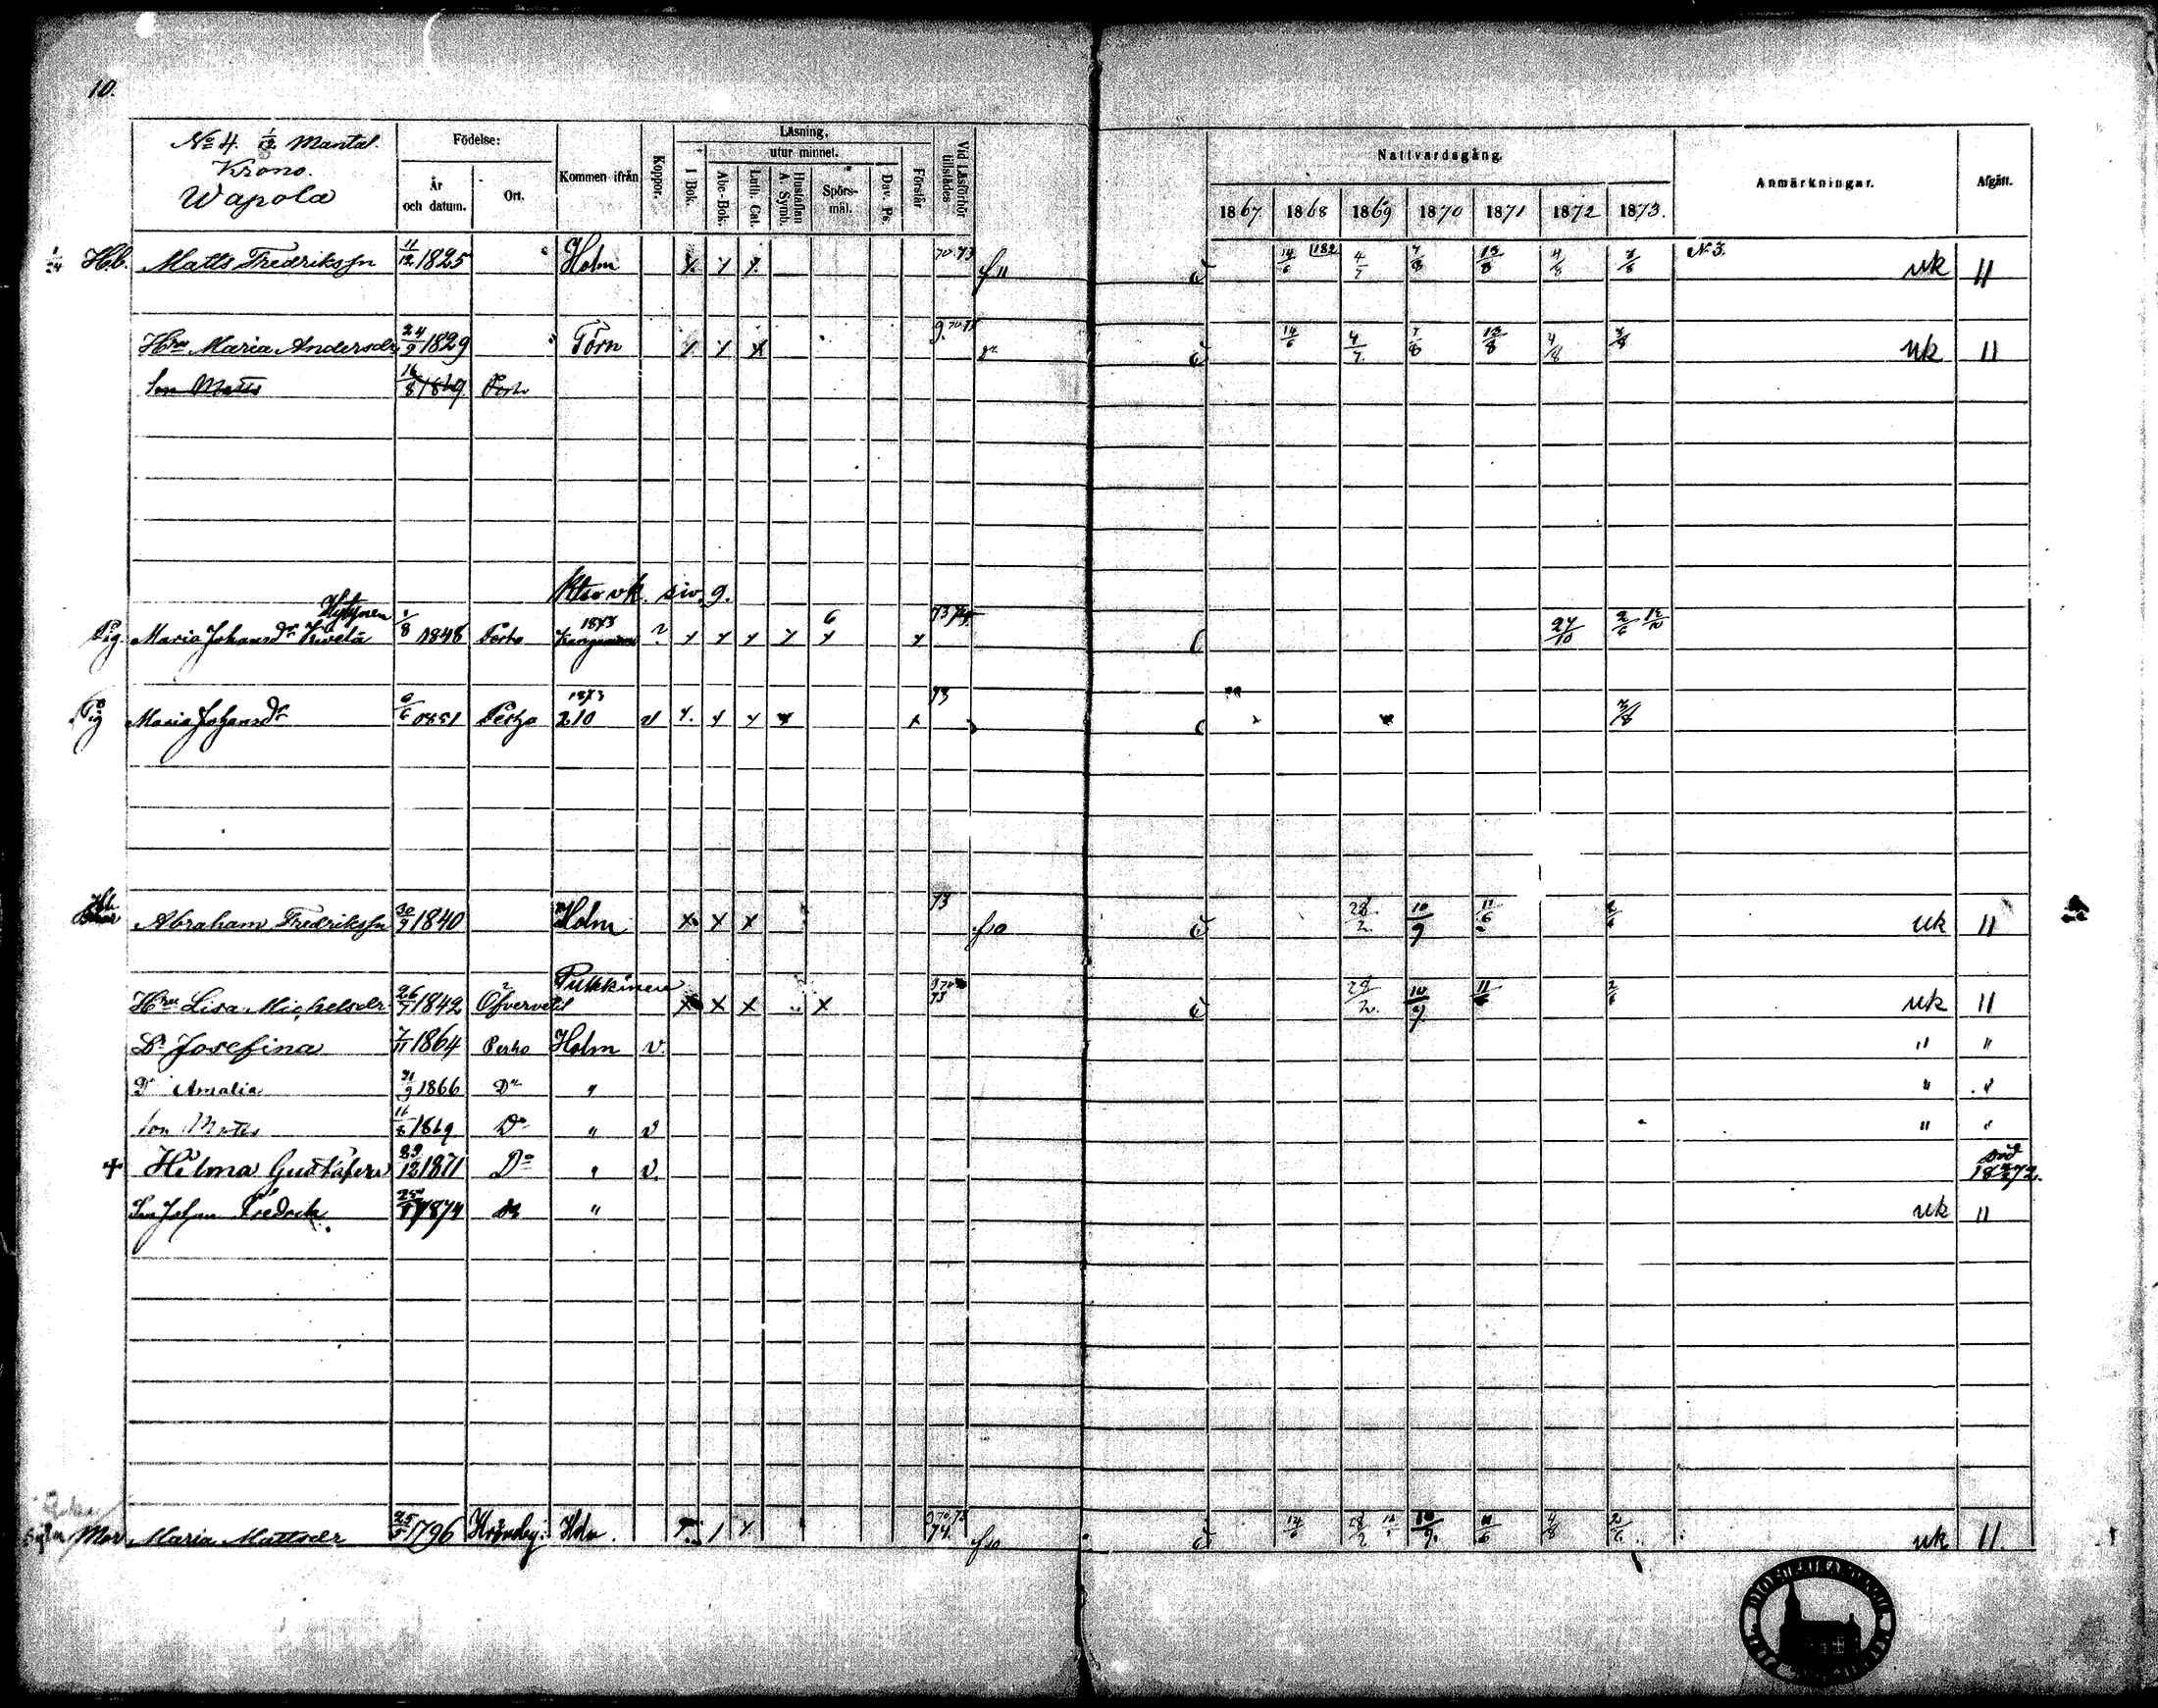 10.
No 4. 1/12 Mantal.
Krono.
Wapola
Födelse:
År och datum.
Ort.
Kommen ifrån
Koppor.
Läsning.
I Bok.
utur minnet.
Abc-Bok.
Luth. Cat.
Hustaflan A. Symb.
Spörsmål.
Dav. Ps.
Förstår
Vid Läsförhör tillstädes
Nattvardsgång.
1867 1868 1869 1870 1871 1872 1873.
Anmärkningar.
Afgått.
1/24 Hb. Matts Fredrikssn 11/12 1825 Holm x x x 70.73 f11 14/6 182 4/7 7/8 13/8 4/8 3/8 N:3. uk 11
Hru Maria Andersdr 24/9 1829 Törn x x x 14/6 4/7 7/8 13/8 4/8 3/8 uk 11
Son Matts 16/8 1869 Perho
Ktso vk. siv. 9.
Pig. Maria Johansdr 1848 Perho 1873 ? x x x x x 6 x 27/10 2/6 12/10
Pig Maria Johansdr 1851 Perho 1873 210 v x x x x x 73 3/8
Hb. Abraham Fredrikssn 30/9 1840 Holm x x x 73 f10 28/2 10/9 11/6 2/6 uk 11
Hru Lisa Michelsdr 26/7 1842 Öfvervetil Pulkkinen x x x x 73 28/2 10/9 11/6 2/6 uk 11
Dr Josefina 7/11 1864 Perho Holm v. " "
Dr Amalia 21/9 1866 Do " " "
Son Matts 16/8 1869 Do " v " "
+ Hilma Gustafva 29/12 1871 Do " v. död 1872.
Son Johan Fredrik 1874 Do " uk 11
Mor Maria Mattsdr 25/5 1796 Kronoby Holm x 1 x 74. f10 14/6 28/2 10/9 11/6 4/8 2/6 uk 11.